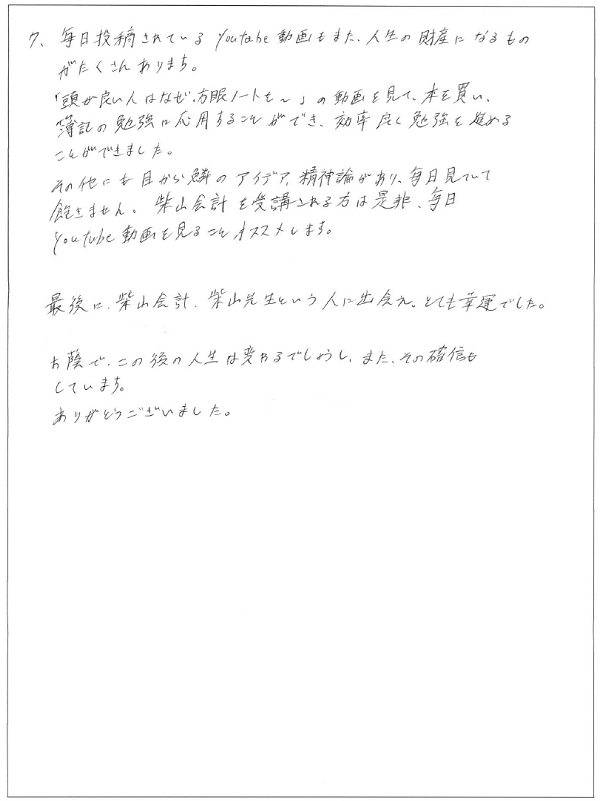 7、毎日投稿されているYoutube動画もまた、人生の財産になるもの
がたくさんあります。
「頭が良い人はなぜ、方眼ノートを～」の動画を見て、本を買い、
簿記の勉強に応用することができ、効率良く勉強を進める
ことができました。
その他にも目から鱗のアイデア、精神論があり、毎日見ていて
飽きません。柴山会計を受講される方は是非、毎日
Youtube動画を見ることオススメします。
最後に、柴山会計、柴山先生という人に出会え。とても幸運でした。
お蔭で、この後の人生は変わるでしょうし、また、その確信も
しています。
ありがとうございました。